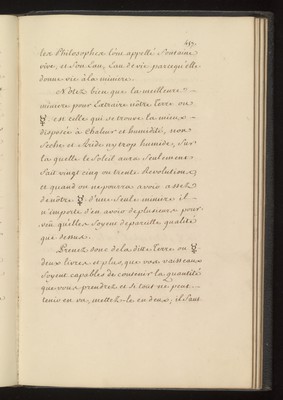 les Philosophes l'ont appellé Fontaine
vive, et son Eau, Eau de vie parcequ'elle
donne vie à la miniere.
Nottez bien que la meilleure
miniere pour Extraire nôtre Terre ou
☿, est celle qui se trouve la mieux
disposée à chaleur et humidité, non
Seche et Aride ny trop humide, Sur
la quelle le Soleil aura Seulement
fait vingt cinq ou trente Revolutions,
et quand on ne pourra avoir assez
de nôtre ☿ d'une Seule miniere il
n'importe d'en avoir de plusieurs pour
vû qu'elles Soyent de pareille qualité
que dessus.
Prenez donc de la ditte Terre ou ☿
deux livres et plus, que vos vaisseaux
Soyent capables de contenir la quantité
que vous prendrez et si tout ne peut
tenir en un, mettez-le en deux; il faut